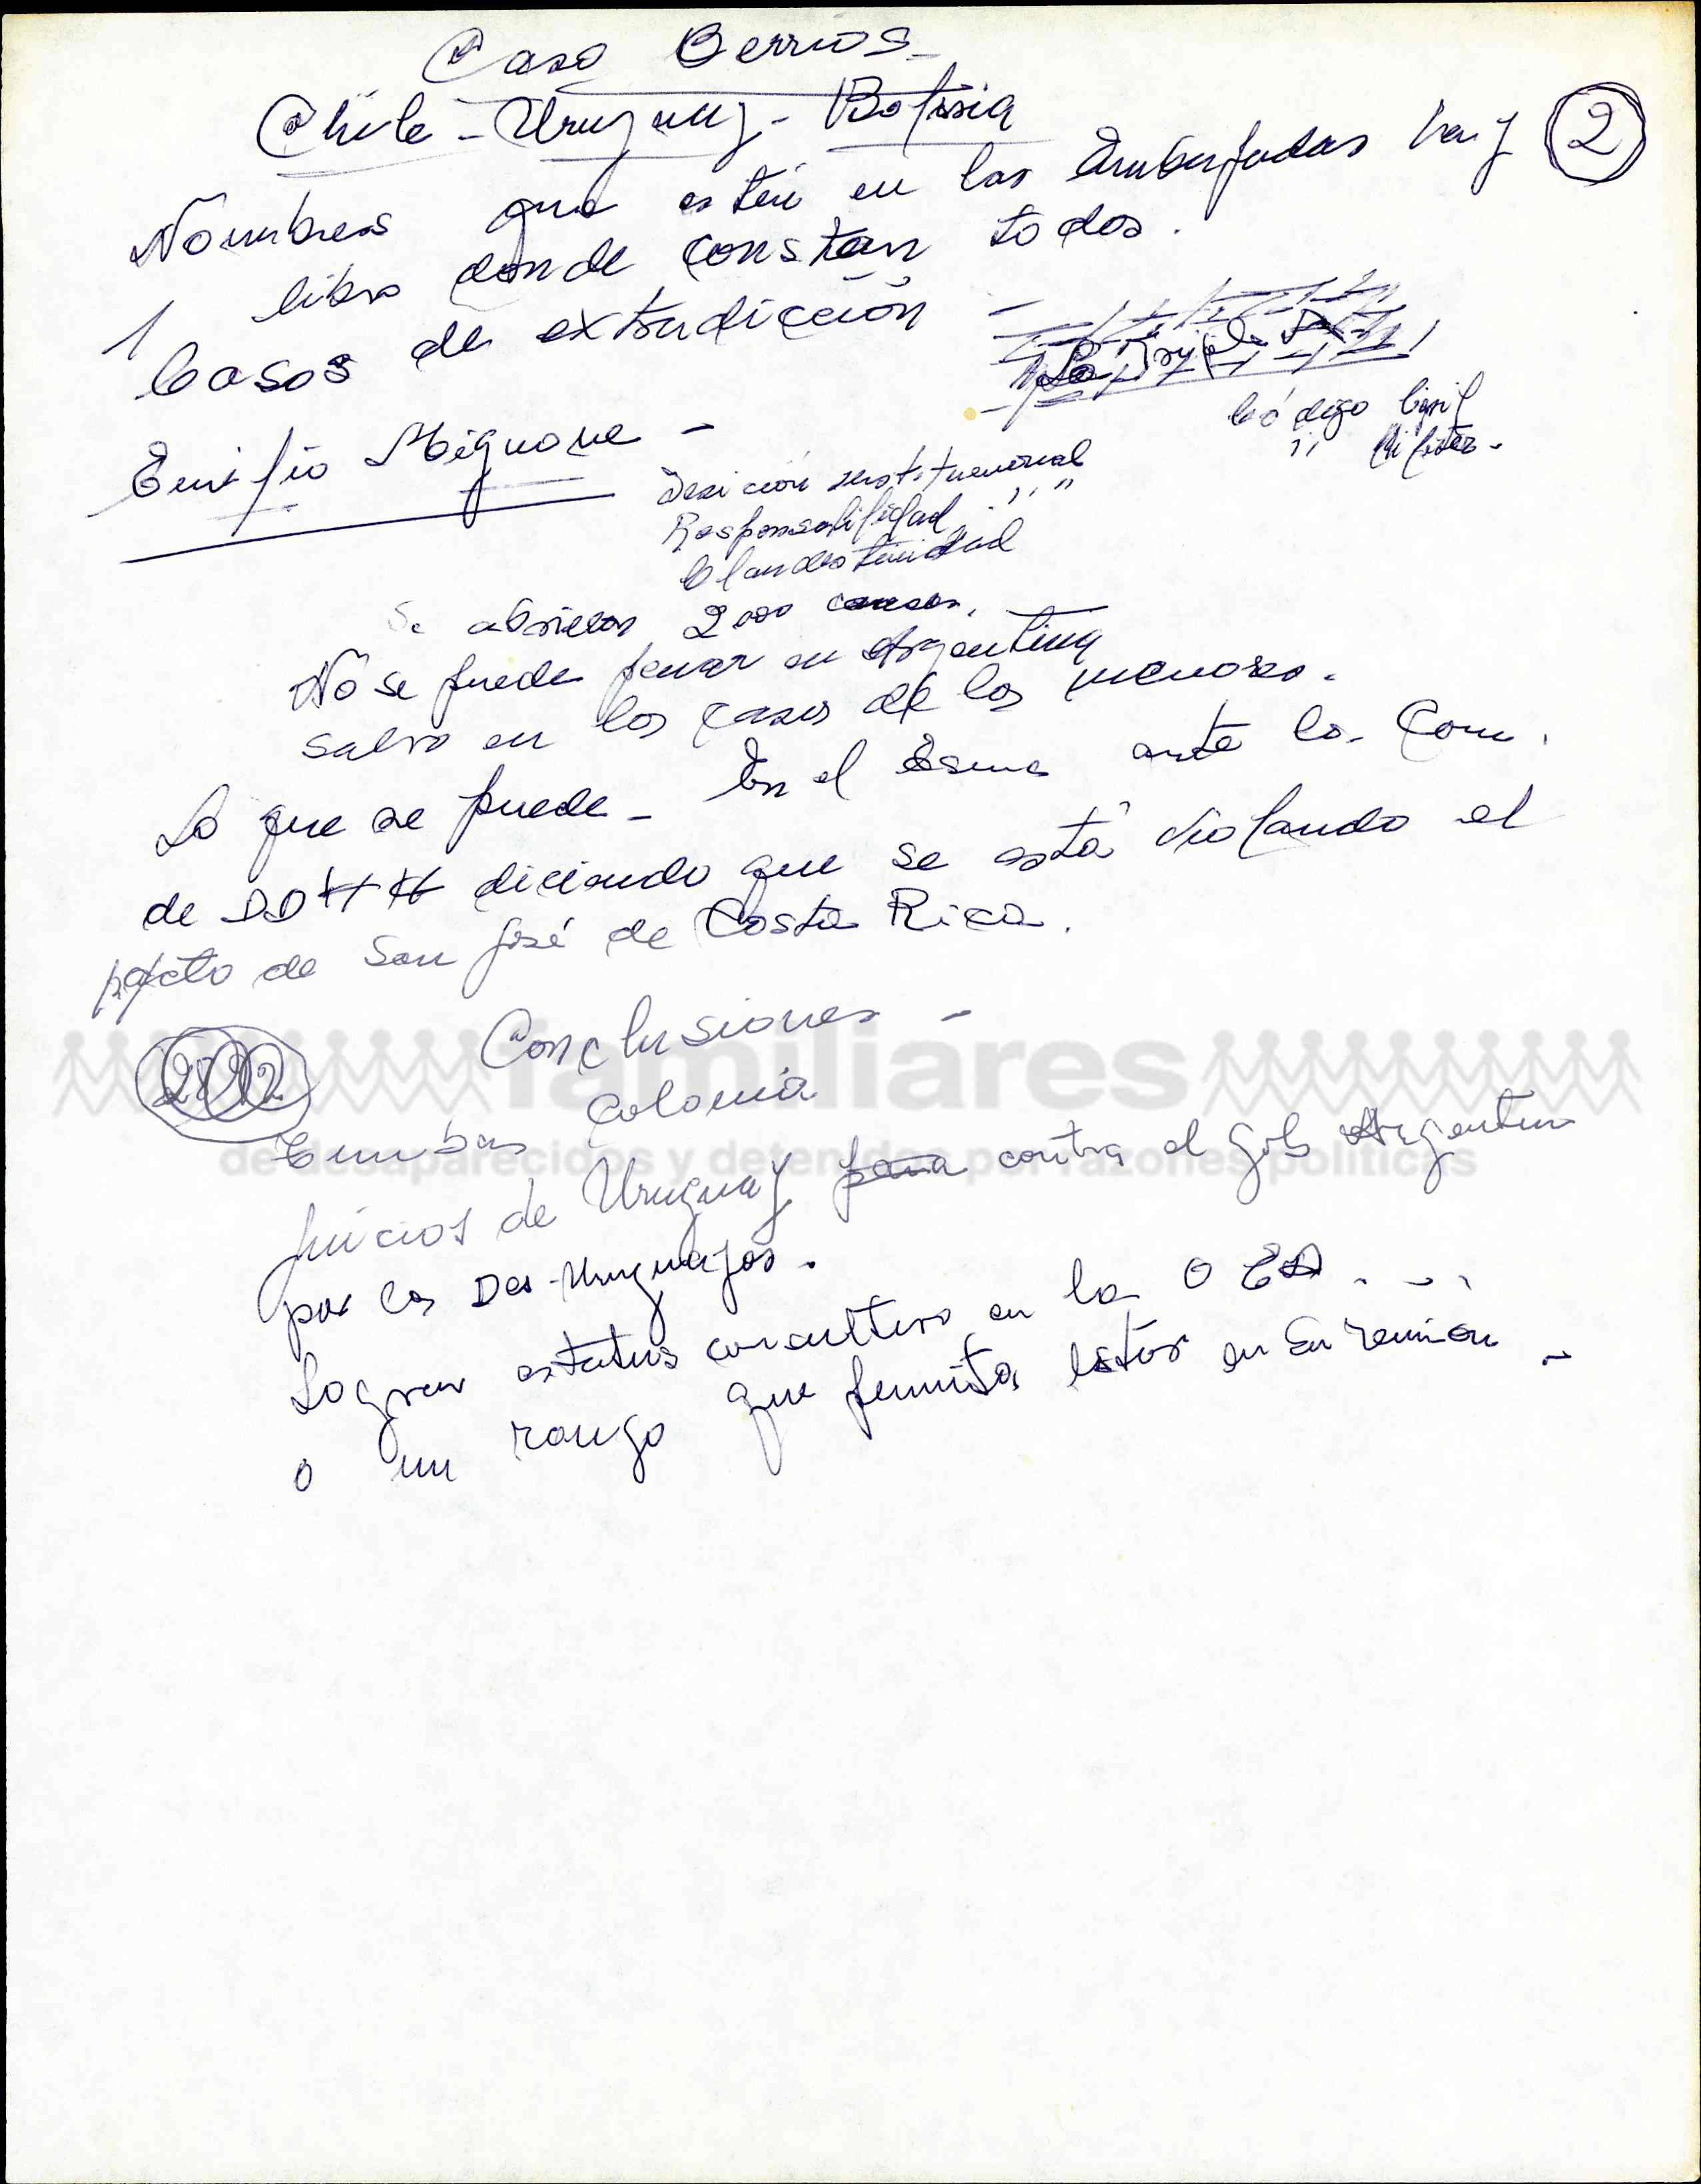 Caso Berrios
Chile - Uruguay - Bolivia
2
Nombres que estén en las Embajadas hay
1 libro donde constan todos.
Casos de extradicción -
La Triple A
Código Civil
" Militar -
Emilio Mignone -
Desición institucional
Responsabilidad " "
Clandestinidad
Se abrieron 2000 causas.
No se puede penar en Argentina
salvo en los casos de los menores.
Lo que se puede - En el Esma ante la Com.
de DDHH diciendo que se está violando el
pacto de San José de Costa Rica.
Conclusiones -
familiares
Colonia
de desaparecidos y detenidos por razones políticas
juicios de Uruguay para contra el gob Argentino
por los Des-Uruguayos.
Lograr estatus consultivo en la OEA . - .
o un rango que permita estar en su reunión -